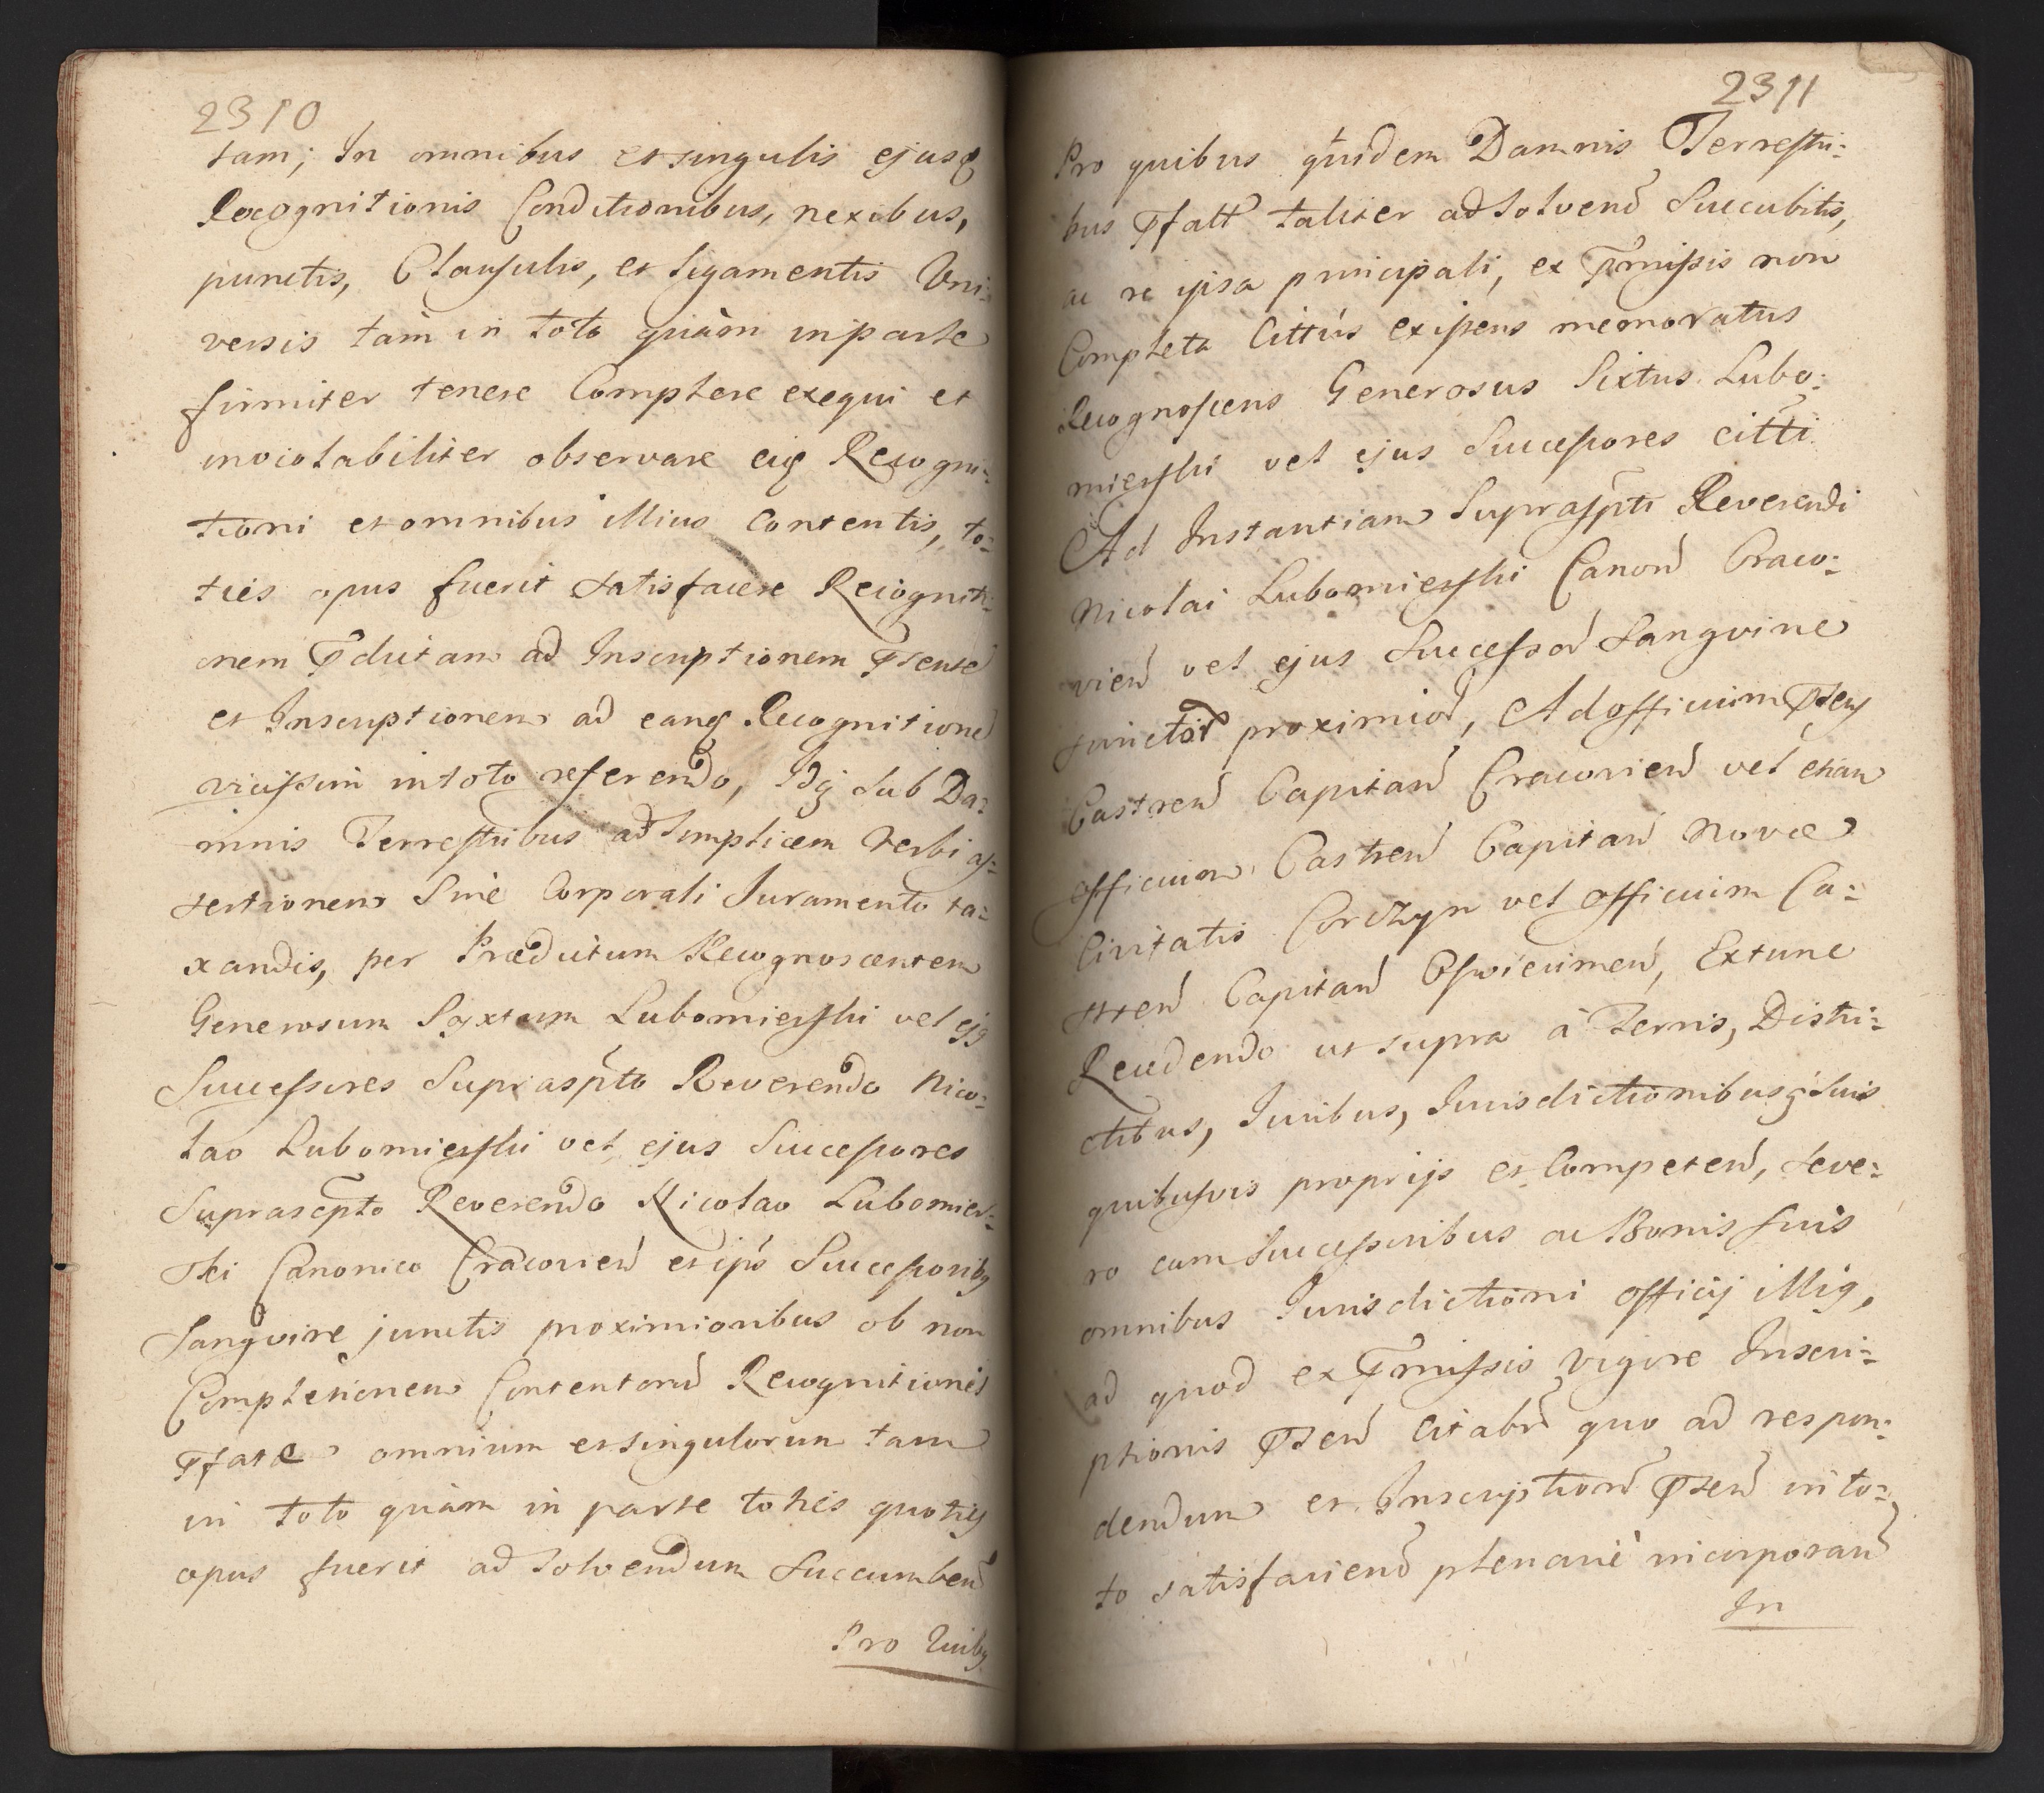 2310
tam; In omnibus et singulis ejusq
Recognitionis Conditionibus, nexibus,
punctis, Clausulis, et ligamentis Uni:
versis tàm in toto quàm in parte
firmiter tenere Complere exequi et
inviolabiliter observare eiq Recogni:
tioni et omnibus illius Contentis, to:
ties opus fuerit satisfacere Recogniti:
onem Pdictam ad Inscriptionem Psente
et Inscriptionem ad eang Recognitione
vicissim in toto referendo, Idq sub Da:
mnis Terrestribus ad simplicem Verbi as:
sertionem Sinè Corporali Juramento ta:
xandis, per Prædictum Recognoscentem
Generosum Syxtum Lubomierski vel ejq
Successores Suprascpto Reverendo Nico:
lao Lubomierski vel ejus Successores
Suprascpto Reverendo Nicolao Lubomier:
ski Canonico Cracovien et ips Successoribq
Sangvine junctis proximioribus ob non
Completionem Contentorum Recognitionis
Pfatæ omnium et singulorum tam
in toto quàm in parte toties quoties
opus fuerit ad solvendum succumben
Pro Quibq
2311
Pro quibus quidem Damnis Terrestri:
bus Pfatt taliter ad solvend Succubitis,
ac re ipsa principali, ex Pmissis non
Completa Cittus existens memoratus
Recognoscens Generosus Sixtus Lubo:
mierski vel ejus Successores citti
Ad Instantiam Suprascpti Reverendi
Nicolai Lubomierski Canon Craco:
vien vel ejus Successor Sangvine
junctor proximior, Ad officium Psens
Castren Capitan Cracovien vel etiam
officium Castren Capitan Novæ
Civitatis Corczyn vel officium Ca:
stren Capitan Osvieciimen, Extunc
Recedendo ut supra à Terris, Distri:
ctibus, Juribus, Jurisdictionibusq suis
quibusvis proprijs et Competen, seve:
ro cum Successoribus ac Bonis suis
omnibus Jurisdictioni officij illiq,
ad quod ex Pmissis vigore Inscri:
ptionis Psen Citabr quo ad respon:
dendum et Inscription Psen in to:
to satisfaciend plenariè incorporan
In